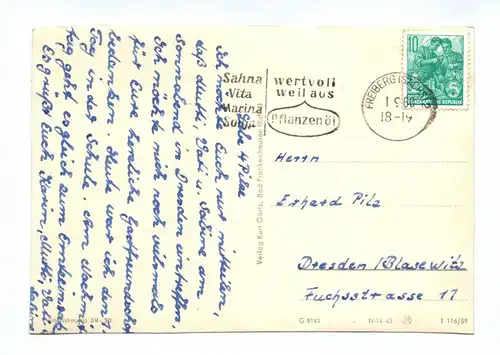 Liebe 4 Pilze
Ich möchte Euch nur mitteilen,
daß Mutti, Vati u. Sabine am
Sonnabend in Dresden eintreffen.
Ich möchte mich noch vielmals
für Eure herzliche Gastfreundschaft
bedanken. Heute war ich den 1.
Tag in der Schule. Am
geht es gleich zum Ernteeinsatz
Es grüßt Euch Karin, Mutti, Vati u.
Sabine
Sahna
Vita
Marina
Sonja
wertvoll
weil aus
Pflanzenöl
FREIBERG (SACHS)
18-19
10
DEUTSCHE DEMOKRATISCHE REPUBLIK
Herrn
Erhard Pilz
Dresden/Blasewitz
Fuchsstrasse 17
Verlag Kurt Görtz, Bad Frankenhausen (Kyffh.)
G 9141
IV-14-45
1 116/59